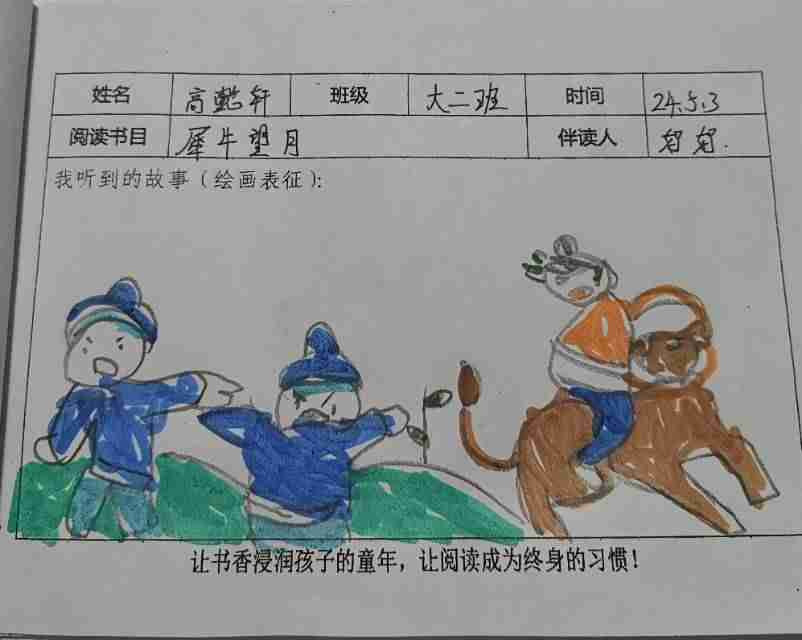 姓名 高懿轩 班级 大二班 时间 24.5.3
阅读书目 犀牛望月 伴读人
我听到的故事（绘画表征）：
让书香浸润孩子的童年，让阅读成为终身的习惯！